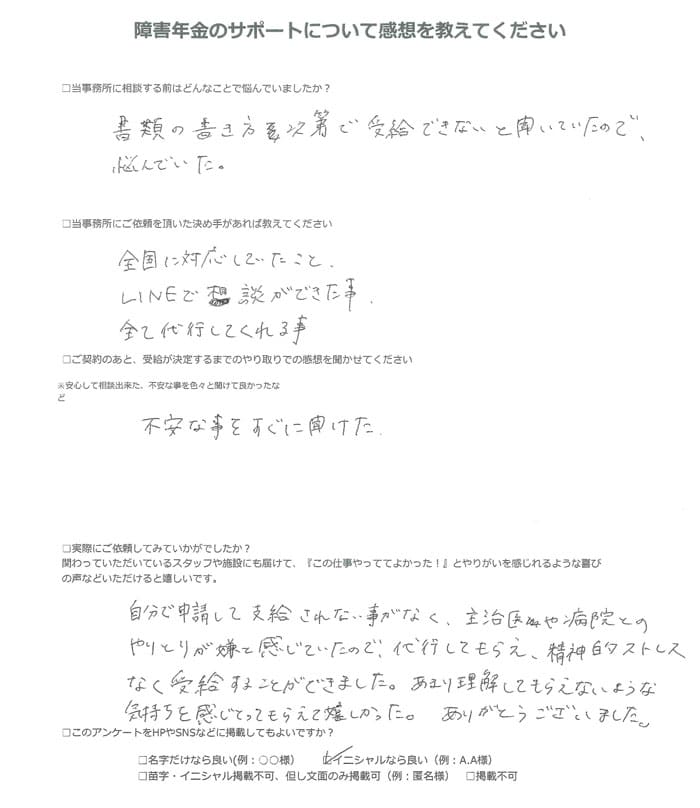 障害年金のサポートについて感想を教えてください
□当事務所に相談する前はどんなことで悩んでいましたか？
書類の書き方次第で受給できないと聞いていたので、
悩んでいた。
□当事務所にご依頼を頂いた決め手があれば教えてください
全国に対応していたこと.
LINEで想談ができた事.
全て代行してくれる事
□ご契約のあと、受給が決定するまでのやり取りでの感想を聞かせてください
※安心して相談出来た、不安な事を色々と聞けて良かったな
ど
不安な事をすぐに聞けた.
□実際にご依頼してみていかがでしたか？
関わっていただいているスタッフや施設にも届けて、『この仕事やっててよかった！』とやりがいを感じれるような喜び
の声などいただけると嬉しいです。
自分で申請して支給されない事がなく、主治医や病院との
やりとりが嫌と感じていたので、代行してもらえ、精神的ストレス
なく受給することができました。あまり理解してもらえないような
気持ちを感じとってもらえて嬉しかった。 ありがとうございました。
□このアンケートをHPやSNSなどに掲載してもよいですか？
□名字だけなら良い(例：○○様） ☑イニシャルなら良い（例：A.A様）
□苗字・イニシャル掲載不可、但し文面のみ掲載可（例：匿名様） □掲載不可